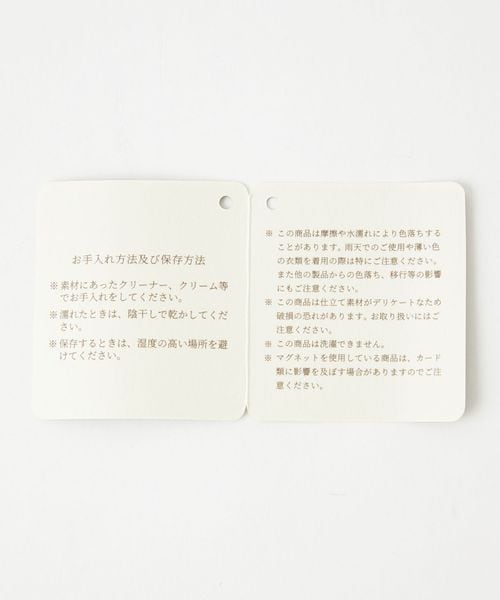 お手入れ方法及び保存方法
※素材にあったクリーナー、クリーム等
でお手入れをしてください。
※濡れたときは、陰干しで乾かしてくだ
さい。
※保存するときは、湿度の高い場所を避
けてください。
※ この商品は摩擦や水濡れにより色落ちする
ことがあります。雨天でのご使用や薄い色
の衣類を着用の際は特にご注意ください。
また他の製品からの色落ち、移行等の影響
にもご注意ください。
※ この商品は仕立て素材がデリケートなため
破損の恐れがあります。お取り扱いにはご
注意ください。
※ この商品は洗濯できません。
※ マグネットを使用している商品は、カード
類に影響を及ぼす場合がありますのでご注
意ください。